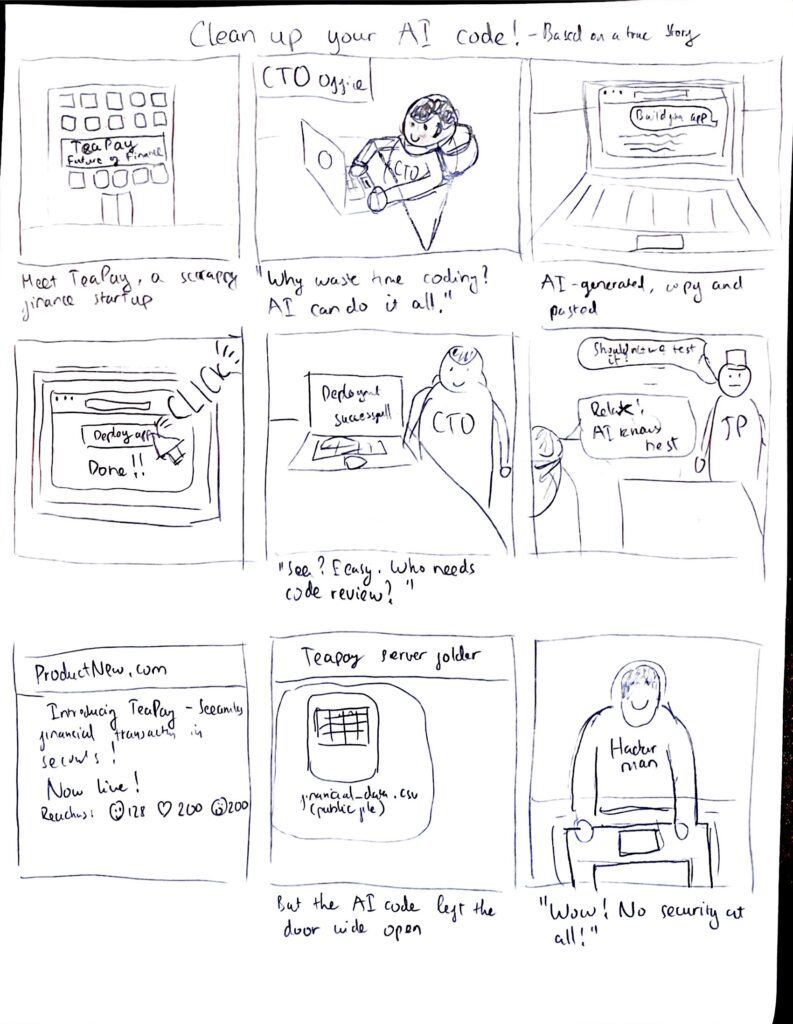 Clean up your AI code! - Based on a true story
TeaPay
Future of Finance
Meet TeaPay, a scrappy
finance startup
CTO Office
CTO
"Why waste time coding?
AI can do it all."
Build you app
AI-generated, copy and
pasted
CLICK
Deploy app
Done!!
Deployment
successfull
CTO
"See? Easy. Who needs
code review?"
Shouldn't we test
it?
Relax!
AI knows
best
JP
ProductNew.com
Introducing TeaPay - Seeamless
financial transactn in
seconds!
Now live!
128 200 200
Teapay server folder
financial_data.csv
(public file)
But the AI code left the
door wide open
Hacker
man
"Wow! No security at
all!"